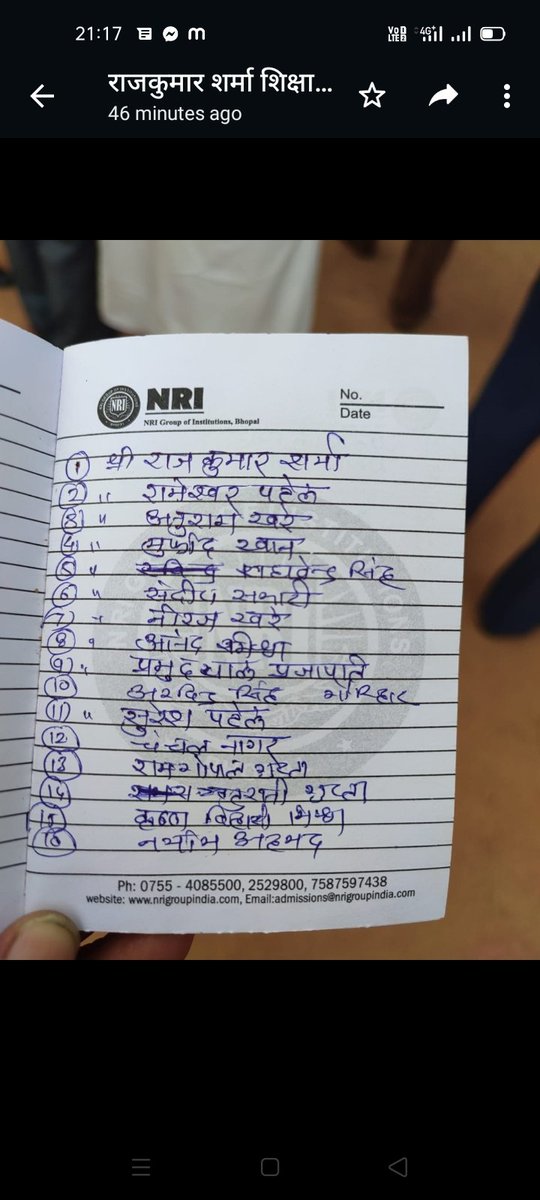 21:17
VoD LTE2 4G+
राजकुमार शर्मा शिक्षा...
46 minutes ago
NRI
NRI
NRI Group of Institutions, Bhopal
No.
Date
1 श्री राज कुमार शर्मा
2 " रामेश्वर पटेल
3 " अनुराग खरे
4 " खान
5 " राघवेन्द्र सिंह
6 " संदीप
7 " नीरज खरे
8 " आनंद
9 " प्रभुदयाल प्रजापति
10 अरविन्द सिंह
11 " सुरेश पटेल
12 चंचल नागर
13 रामगोपाल
14
15 बिहारी मिश्रा
16 नसीम अहमद
Ph: 0755 - 4085500, 2529800, 7587597438
website: www.nrigroupindia.com, Email:admissions@nrigroupindia.com